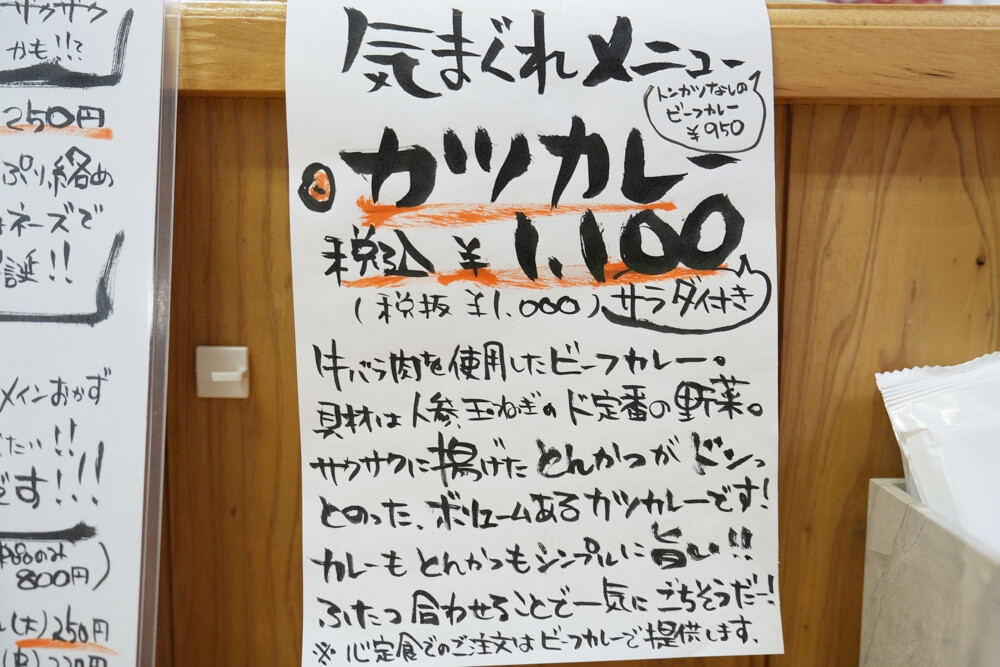 ザクザク
かも!!?
250円
ぷり絡め
ネーズで
誕!!
メインおかず
たい!!
です!!!
単品のみ
800円)
(大)250円
気まぐれメニュー
トンカツなしの
ビーフカレー
¥950
カツカレー
税込 ¥1,100
(税抜 ¥1,000)
サラダ付き
牛バラ肉を使用したビーフカレー。
具材は人参玉ねぎのド定番の野菜。
サクサクに揚げたとんかつがドンっ
とのった、ボリュームあるカツカレーです!
カレーもとんかつもシンプルに旨い!!
ふたつ合わせることで一気にごちそうだー!
※心定食でのご注文はビーフカレーで提供します。